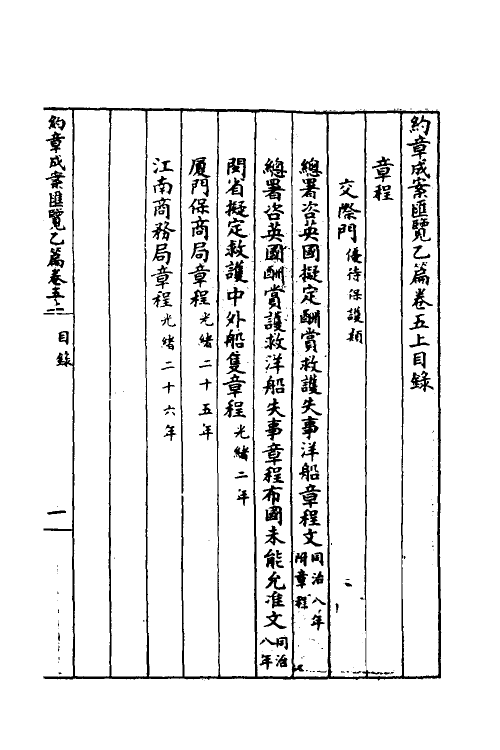 約章成案匯覽乙篇卷五上目錄
章程
交際門優待保護類
總署咨英國擬定酬賞救護失事洋船章程文同治八年附章程
總署咨英國酬賞護救洋船失事章程布國未能允准文同治八年
閩省擬定救護中外船隻章程光緒二年
厦門保商局章程光緒二十五年
江南商務局章程光緒二十六年
約章成案匯覽乙篇卷五上
目錄
一